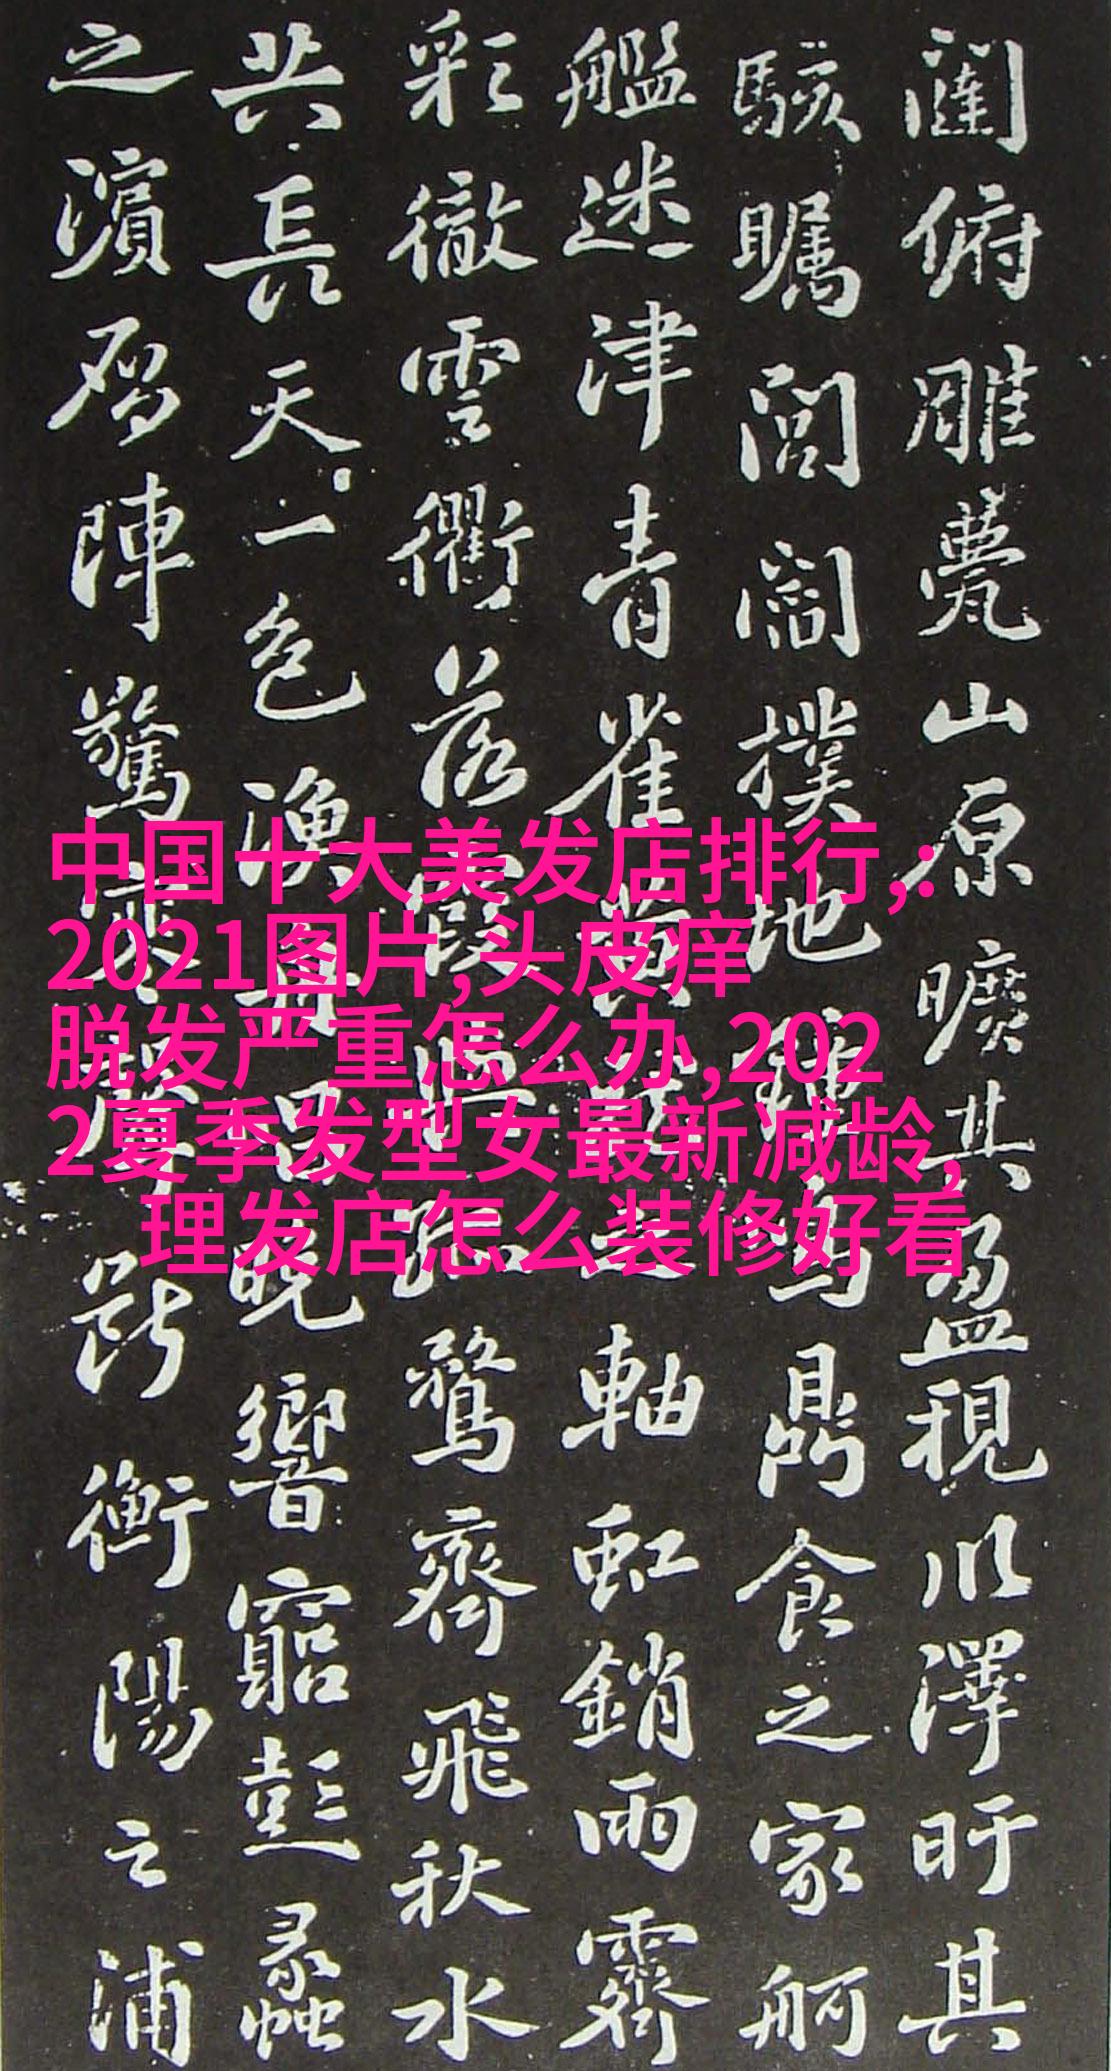 闥俯雕甍山原曠其盈視川澤盱其
駭矚閭閻撲地鍾鳴鼎食之家舸
艦迷津青雀黃龍之軸虹銷雨霽
彩徹雲衢落霞與孤鶩齊飛秋水
共長天一色漁舟唱晚響窮彭蠡
之濱雁陣驚寒聲斷衡陽之浦
中国十大美发店排行,:
2021图片,头皮痒
脱发严重怎么办,202
2夏季发型女最新减龄,
理发店怎么装修好看